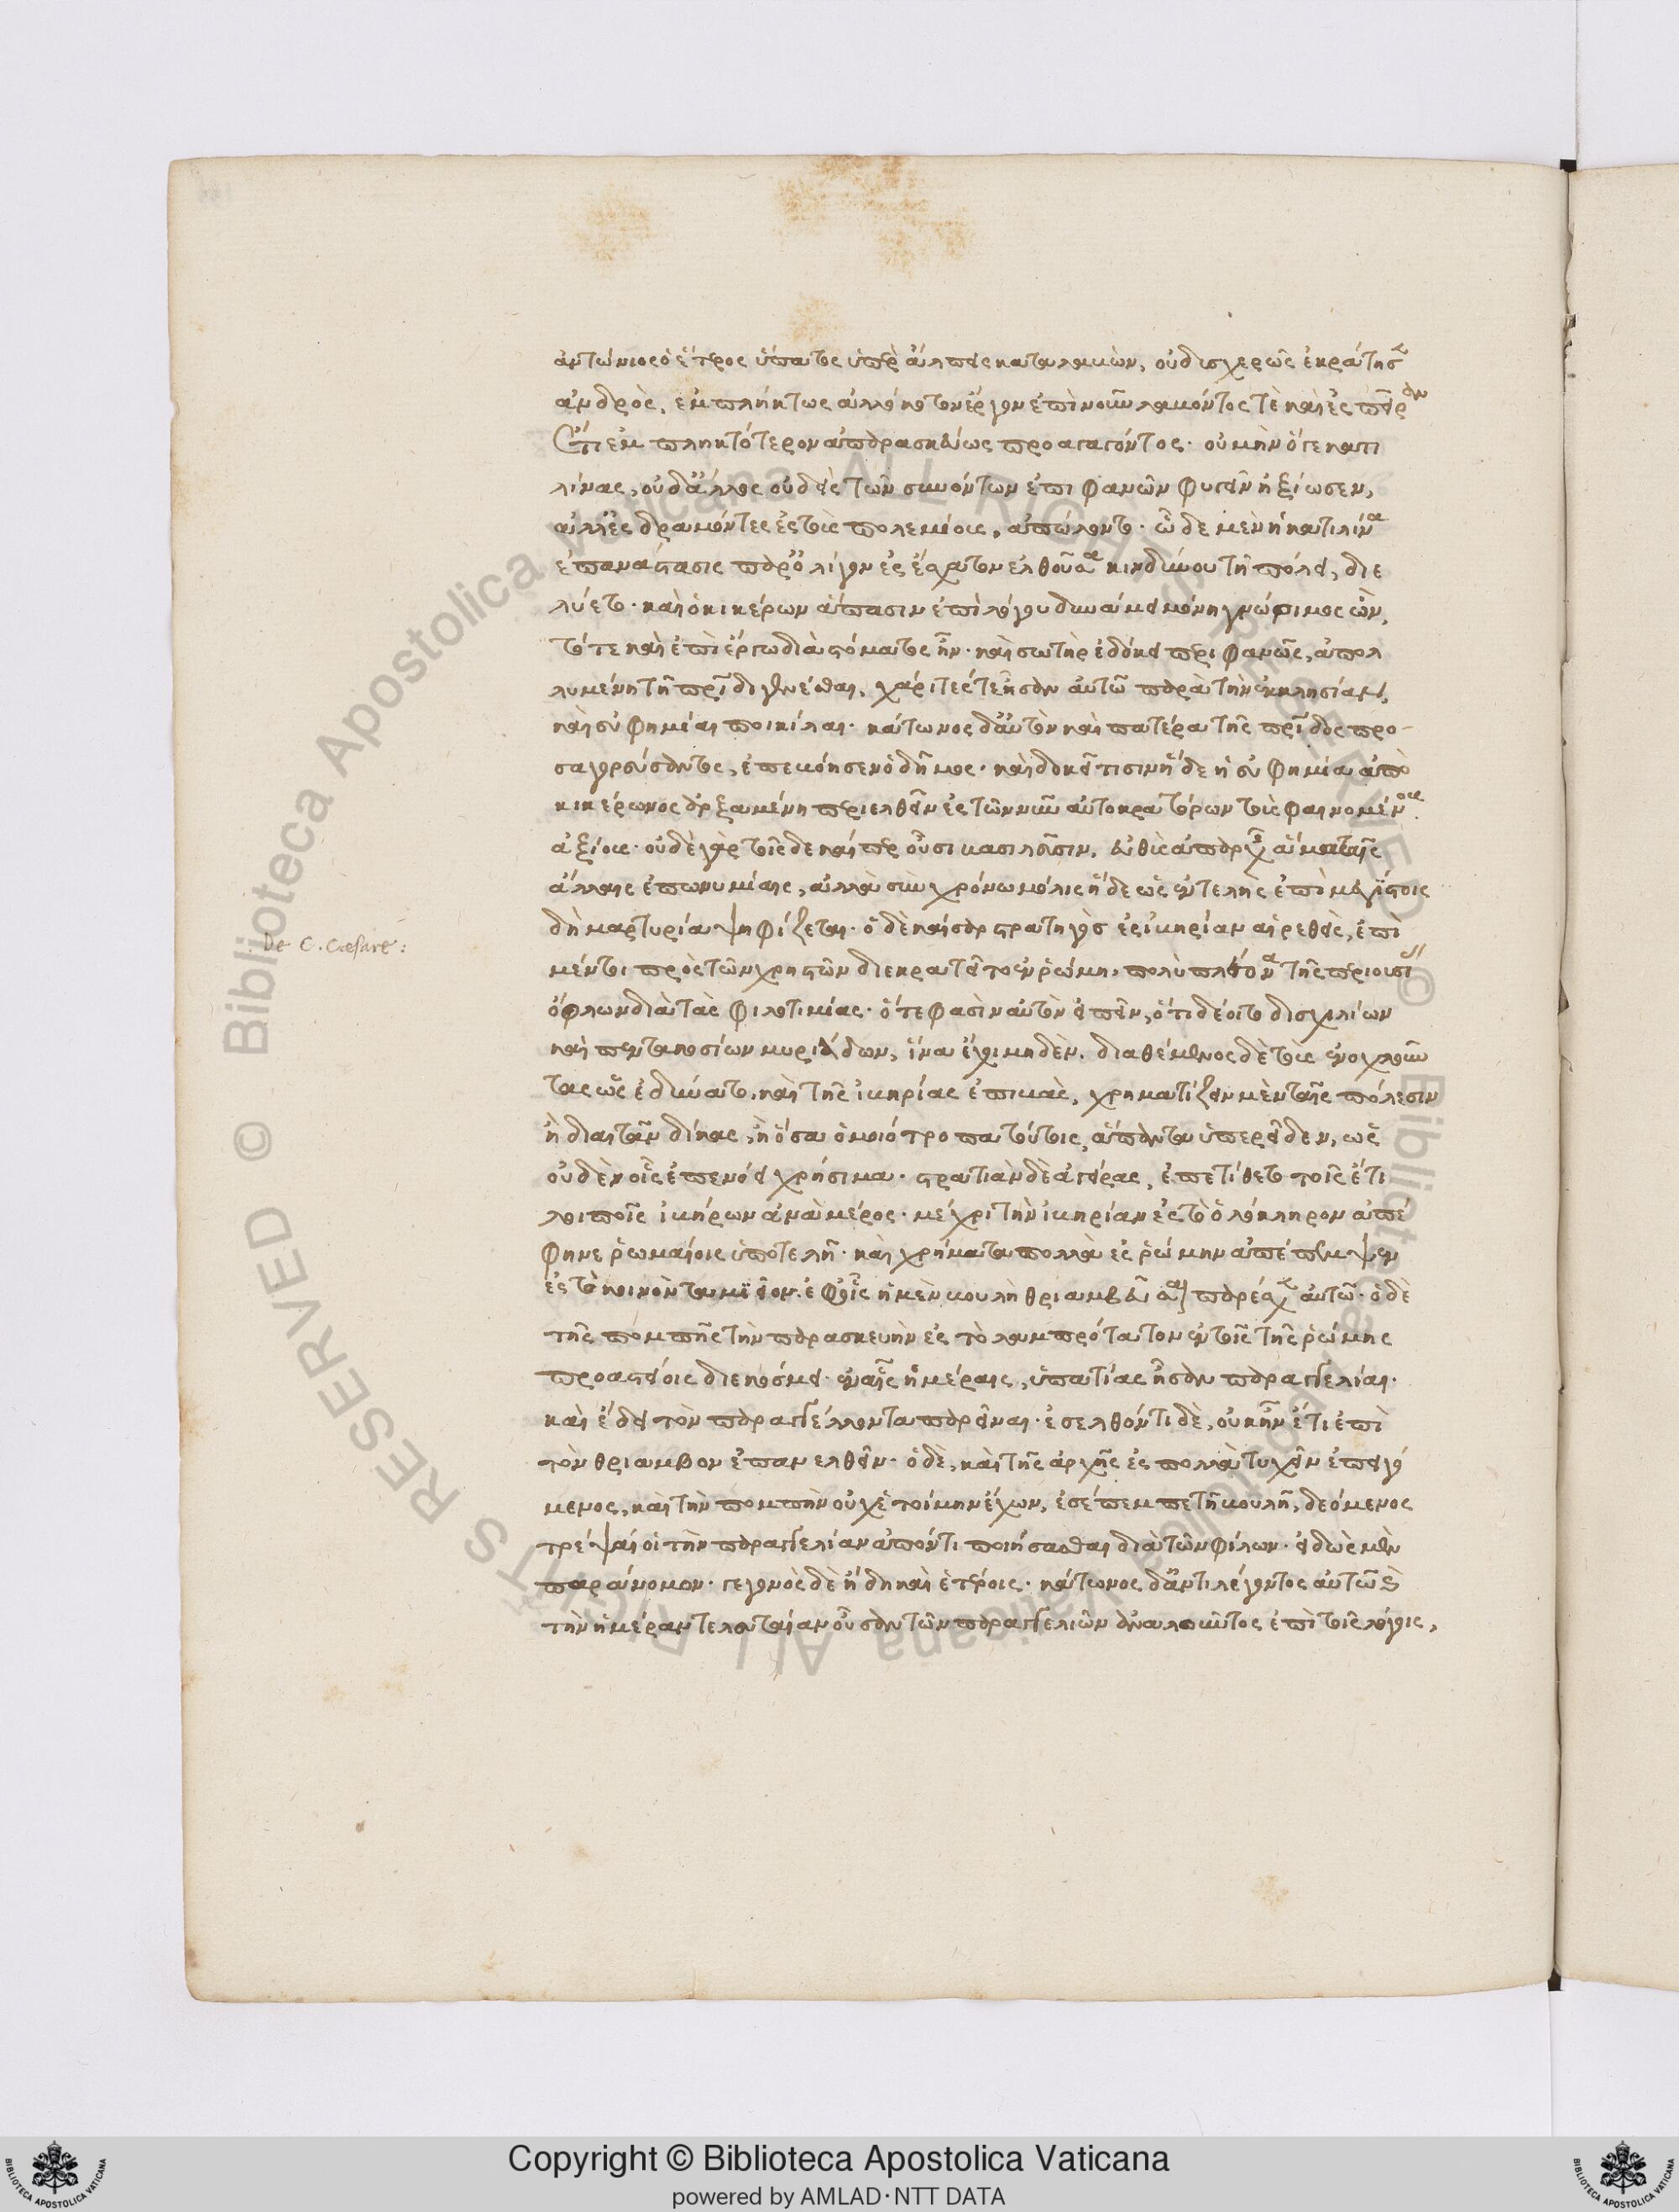 ἀντώνιος ὁ ἕτερος ὕπατος ὑπὲρ ἄλπεις καταλαβὼν, οὐ δυσχερῶς ἐκράτησε
ἀνδρὸς, ἐμπλήκτως ἀλλόκοτον ἔργον ἐπὶ νοῦν λαβόντος τὲ καὶ ἐς πεῖραν
Ἔτι ἐμπληκτότερον ἀπαρασκεύως προαγαγόντος· οὐ μὴν ὅγε κατι
λίνας, οὐδ' ἄλλος οὐδεὶς τῶν συνόντων ἐπιφανῶν φυγεῖν ἠξίωσεν,
ἀλλ' ἐσδραμόντες ἐς τοὺς πολεμίους, ἀπώλοντο· ὧδε μὲν ἡ κατιλίνα
ἐπανάστασις παρ' ὀλίγον ἐς ἔσχατον ἐλθοῦσα κινδύνου τῇ πόλει, διε
λύετο· καὶ ὁ κικέρων ἅπασιν ἐπὶ λόγου δυνάμει μόνῃ γνώριμος ὢν,
τότε καὶ ἐπὶ ἔργω διὰ στόματος ἦν· καὶ σωτὴρ ἐδόκει περιφανῶς, ἀπολ
λυμένη τῇ πατρίδι γενέσθαι, χάριτές τε ἦσαν αὐτῶ παρὰ τὴν ἐκκλησίαν,
καὶ εὐφημίαι ποικίλαι· κάτωνος δ' αὐτὸν καὶ πατέρα τῆς πατρίδος προ-
σαγορεύσαντος, ἐπεβόησεν ὁ δῆμος· καὶ δοκεῖ τισιν ἥδε ἡ εὐφημία ἀπὸ
κικέρωνος ἀρξαμένη περιελθεῖν ἐς τῶν νῦν αὐτοκρατόρων τοὺς φαινομένους
ἀξίους· οὐδὲ γὰρ τοῖσδε καίπερ οὖσι βασιλεῦσιν, εὐθὺς ἀπαρχῆς ἅμα ταῖς
ἄλλαις ἐπωνυμίαις, ἀλλὰ σὺν χρόνω μόλις ἥδε ὡς ἐντελὴς ἐπὶ μεγίστοις
δὴ μαρτυρία ψηφίζεται· ὁ δὲ καίσαρ στρατηγὸς ἐς ἰβηρίαν αἱρεθεὶς, ἐπὶ
De C. Caesare:
μέν τι πρὸς τῶν χρηστῶν διεκρατεῖτο ἐν ῥώμη, πολὺ πλείονα τῆς περιουσίας
ὄφλων διὰ τὰς φιλοτιμίας· ὅτε φασὶν αὐτὸν εἰπεῖν, ὅτι δέοιτο δισχιλίων
καὶ πεντακοσίων μυριάδων, ἵνα ἔχοι μηδὲν. διαθέμενος δὲ τοὺς ἐνοχλοῦν
τας ὡς ἐδύνατο, καὶ τῆς ἰβηρίας ἐπιβὰς, χρηματίζειν μὲν ταῖς πόλεσιν
ἢ διαιτᾶν δίκας, ἢ ὅσα ὁμοιότροπα τούτοις, ἅπαντα ὑπερεῖδεν, ὡς
οὐδὲν οἷς ἐπενόει χρήσιμα· στρατιὰν δὲ ἀγείρας, ἐπετίθετο τοῖς ἔτι
λοιποῖς ἰβήρων ἀνὰ μέρος· μέχρι τὴν ἰβηρίαν ἐς τὸ ὁλόκληρον ἀπέ
φηνε ῥωμαίοις ὑποτελῆ· καὶ χρήματα πολλὰ ἐς ῥώμην ἀπέπεμψεν
ἐς τὸ κοινὸν ταμιεῖον. ἐφ' οἷς ἡ μὲν βουλὴ θριαμβεῦσαι παρέσχε αὐτῶ· ὁ δὲ
τῆς πομπῆς τὴν παρασκευὴν ἐς τὸ λαμπρότατον ἐν τοῖς τῆς ῥώμης
προαστείοις διεκόσμει· ἐν αἷς ἡμέραις, ὑπατίας ἦσαν παραγγελίαι·
καὶ ἔδει τὸν παραγγέλλοντα παρεῖναι· ἐσελθόντι δὲ, οὐκ ἦν ἔτι ἐπὶ
τὸν θρίαμβον ἐπανελθεῖν· ὁ δὲ, καὶ τῆς ἀρχῆς ἐς πολλὰ τυχεῖν ἐπειγό
μενος, καὶ τὴν πομπὴν οὐχ ἑτοίμην ἔχων, ἐσέπεμπε τῇ βουλῇ, δεόμενος
τρέψαι οἱ τὴν παραγγελίαν ἀπόντι ποιήσασθαι διὰ τῶν φίλων· εἰδὼς μὲν
παράνομον· γεγονὸς δὲ ἤδη καὶ ἑτέροις· κάτωνος δ' ἀντιλέγοντος αὐτῶ καὶ
τὴν ἡμέραν τελευταίαν οὖσαν τῶν παραγγελιῶν ἀναλοῦντος ἐπὶ τοῖς λόγοις,
Copyright © Biblioteca Apostolica Vaticana
powered by AMLAD·NTT DATA